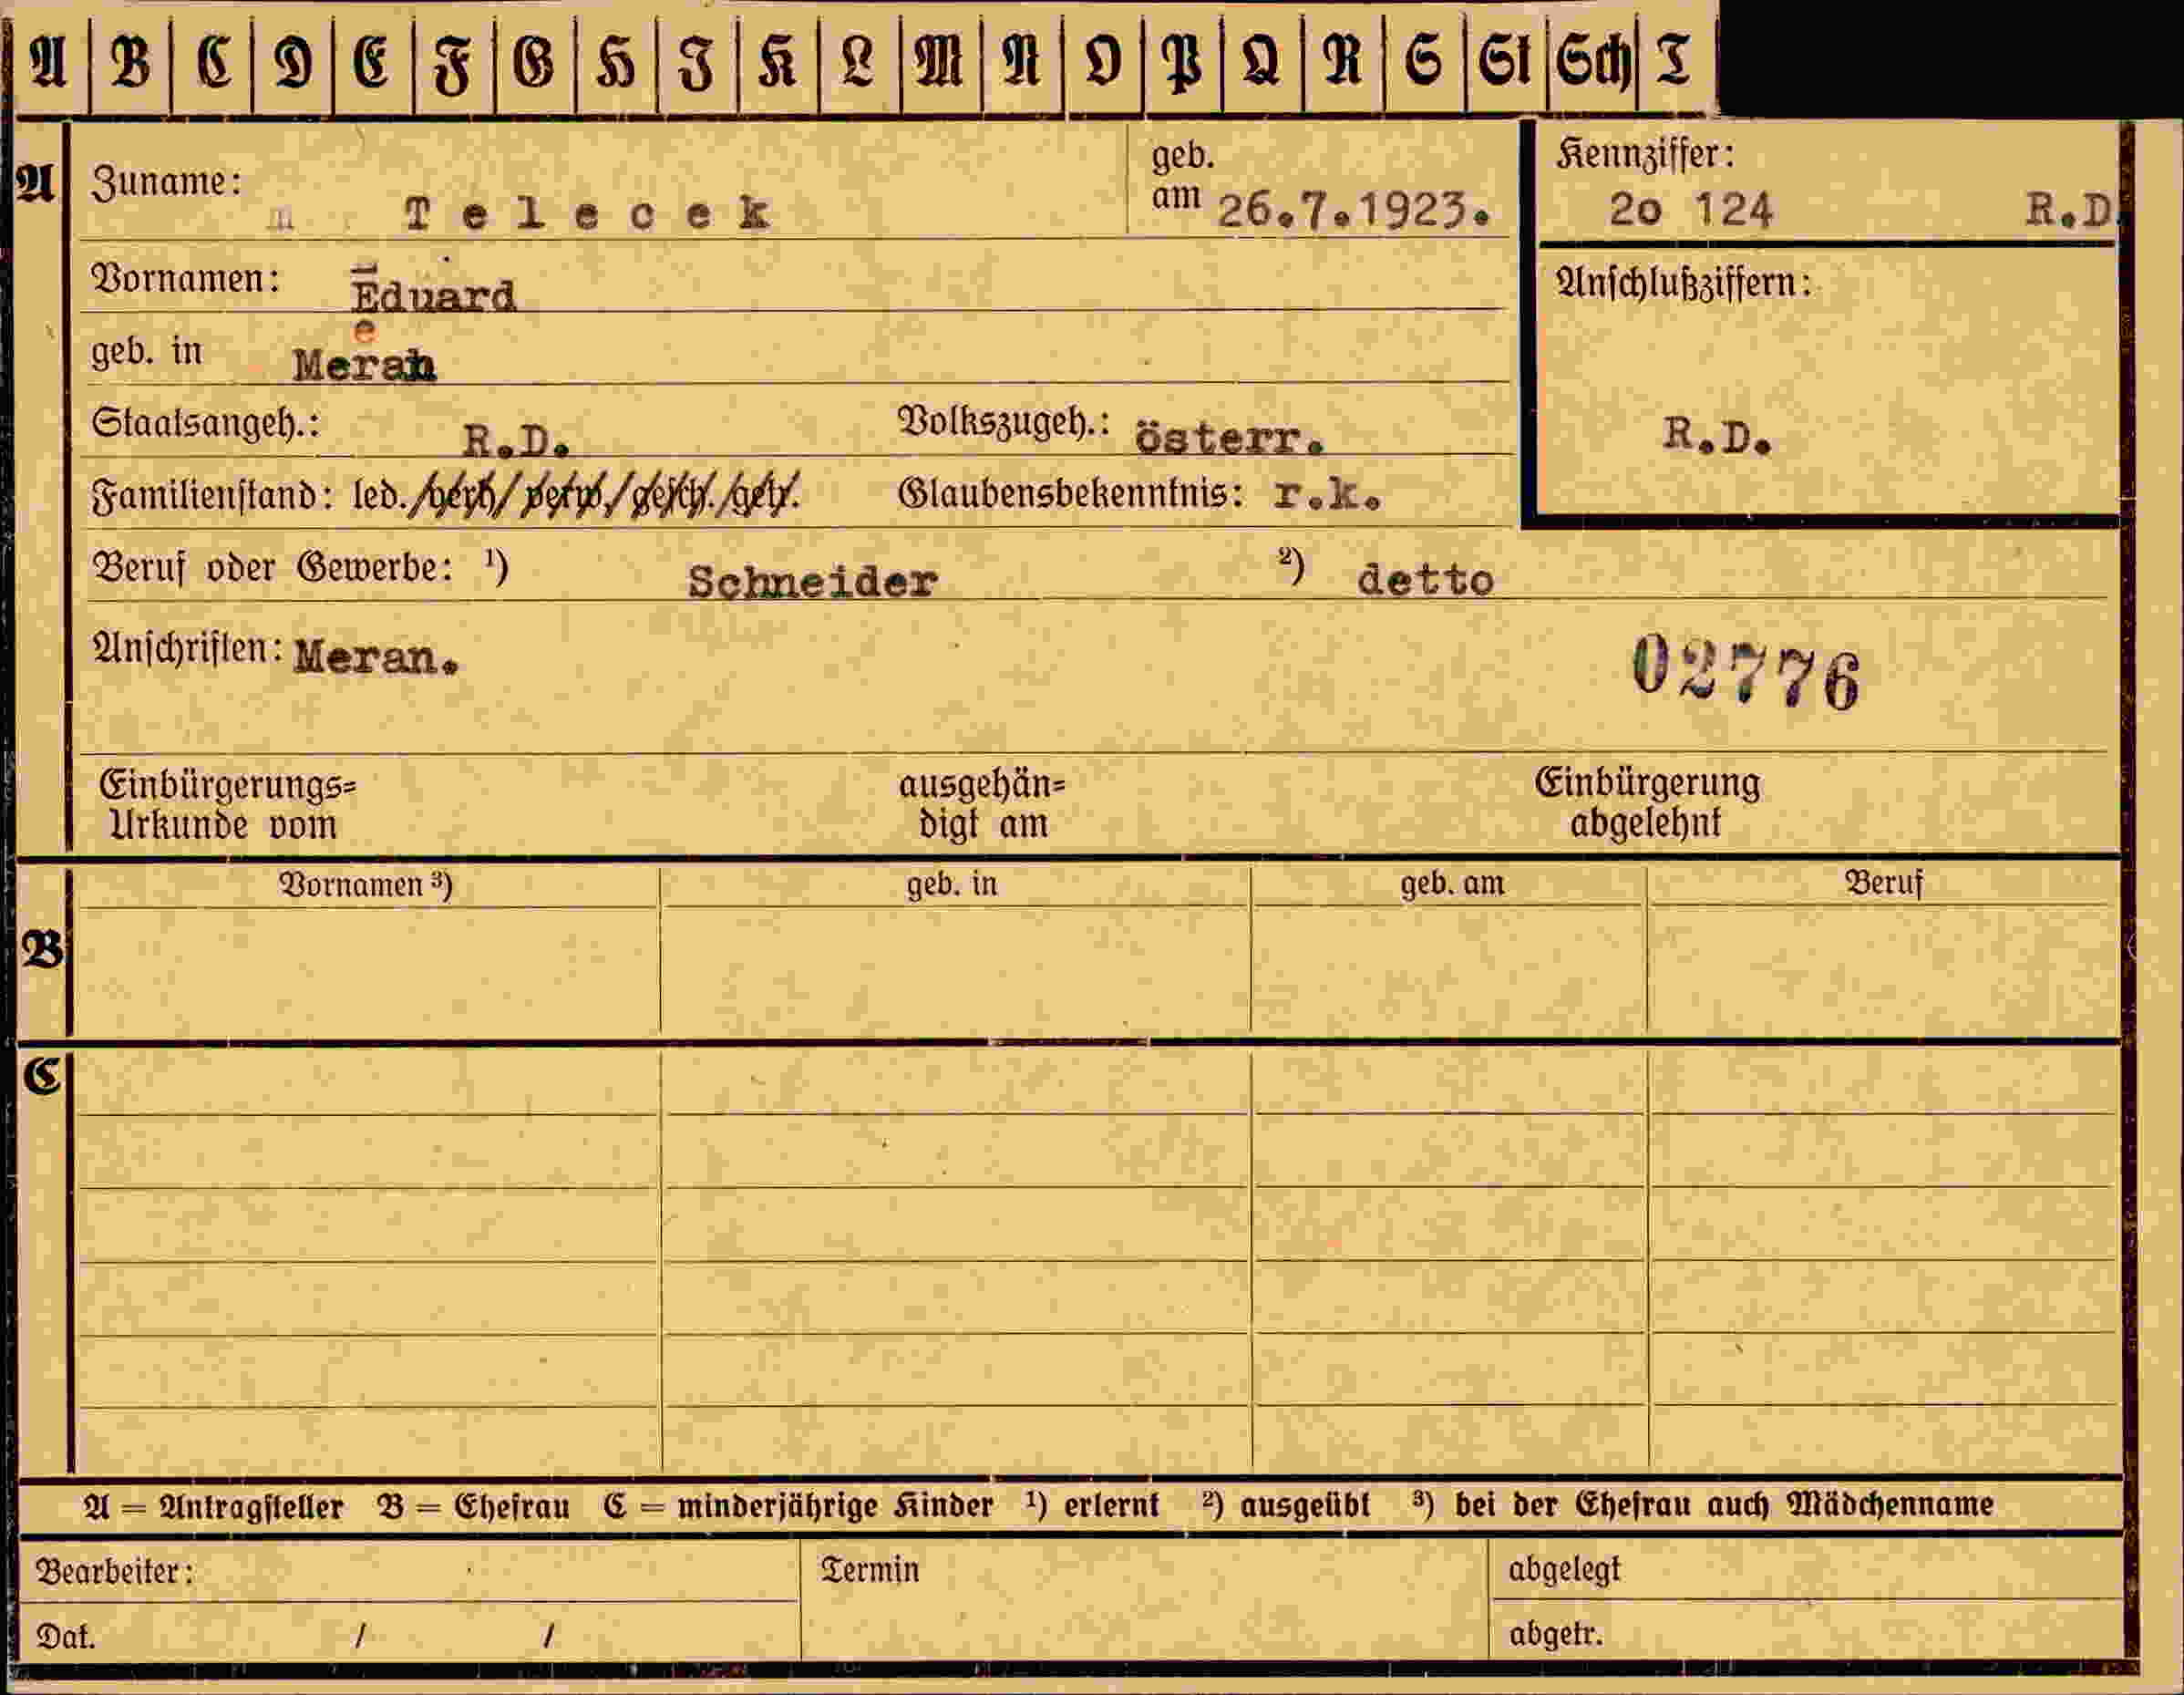 A B C D E F G H I K L M N O P Q R S St Sch T
A Zuname: T e l e c e k geb. am 26.7.1923. Kennziffer: 2o 124 R.D.
Vornamen: Eduard Anschlußziffern:
e
geb. in Meran
Staatsangeh.: R.D. Volkszugeh.: österr. R.D.
Familienstand: led./verh/verw./gesch./getr. Glaubensbekenntnis: r.k.
Beruf oder Gewerbe: ¹) Schneider ²) detto
Anschriften: Meran. 02776
Einbürgerungs= ausgehän= Einbürgerung
Urkunde vom digt am abgelehnt
Vornamen ³) geb. in geb. am Beruf
B
C
A = Antragsteller B = Ehefrau C = minderjährige Kinder ¹) erlernt ²) ausgeübt ³) bei der Ehefrau auch Mädchenname
Bearbeiter: Termin abgelegt
Dat. / / abgetr.